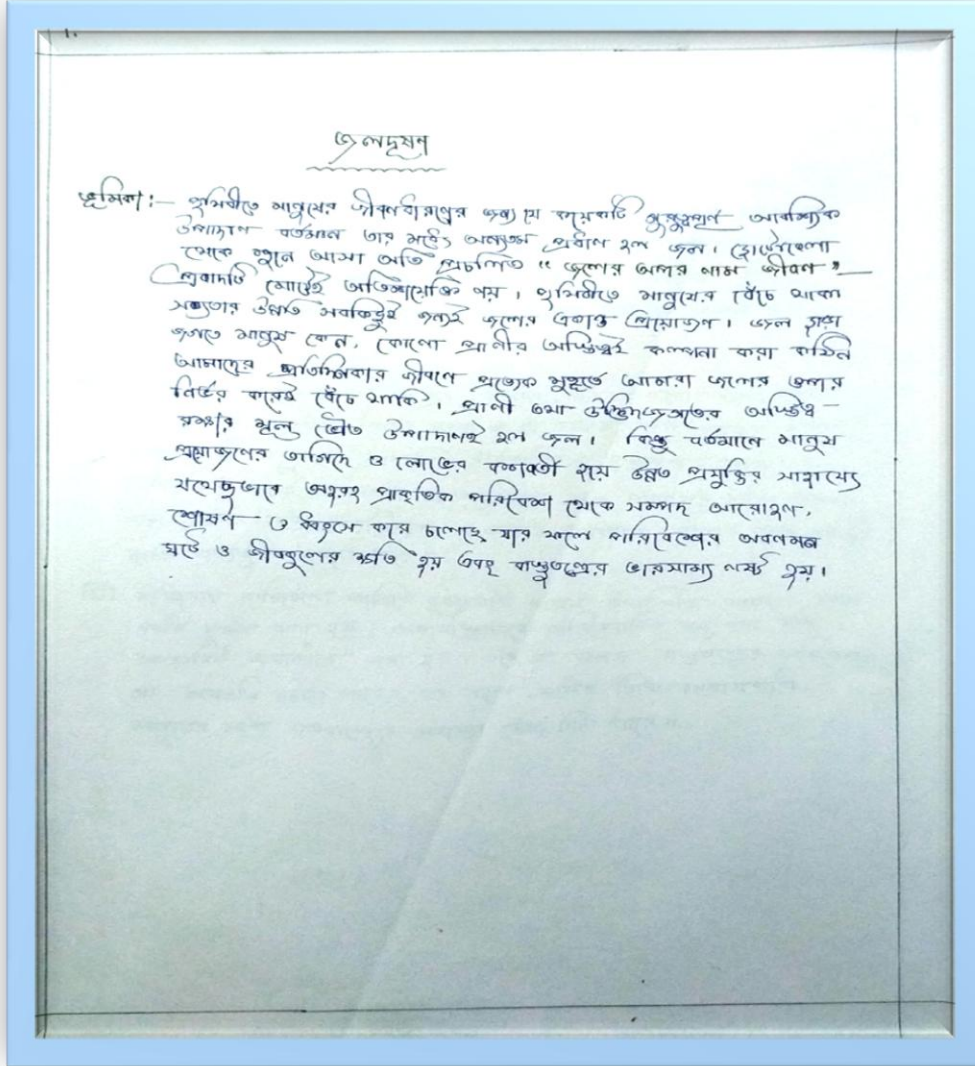 1.
জলদূষণ
ভূমিকা:— পৃথিবীতে মানুষের জীবনধারণের জন্য যে কয়েকটি গুরুত্বপূর্ণ আবশ্যিক
উপাদান বর্তমান তার মধ্যে অন্যতম প্রধান হল জল। ছোটোবেলা
থেকে শুনে আসা অতি প্রচলিত “জলের অপর নাম জীবন”—
প্রবাদটি মোটেই অতিশয়োক্তি নয়। পৃথিবীতে মানুষের বেঁচে থাকা
সভ্যতার উন্নতি সবকিছুই জন্যই জলের একান্ত প্রয়োজন। জল ছাড়া
জগতে মানুষ কেন, কোনো প্রাণীর অস্তিত্বই কল্পনা করা কঠিন
আমাদের প্রতিদিনকার জীবনে প্রত্যেক মুহূর্তে আমরা জলের ওপর
নির্ভর করেই বেঁচে থাকি। প্রাণী তথা উদ্ভিদজগতের অস্তিত্ব
রক্ষার মূল ভৌত উপাদানই হল জল। কিন্তু বর্তমানে মানুষ
প্রয়োজনের তাগিদে ও লোভের বশবর্তী হয়ে উন্নত প্রযুক্তির সাহায্যে
যথেচ্ছভাবে অহরহ প্রাকৃতিক পরিবেশ থেকে সম্পদ আরোহণ,
শোষণ ও ধ্বংস করে চলেছে যার ফলে পরিবেশের অবণমন
ঘটে ও জীবকুলের ক্ষতি হয় এবং বাস্তুতন্ত্রের ভারসাম্য নষ্ট হয়।